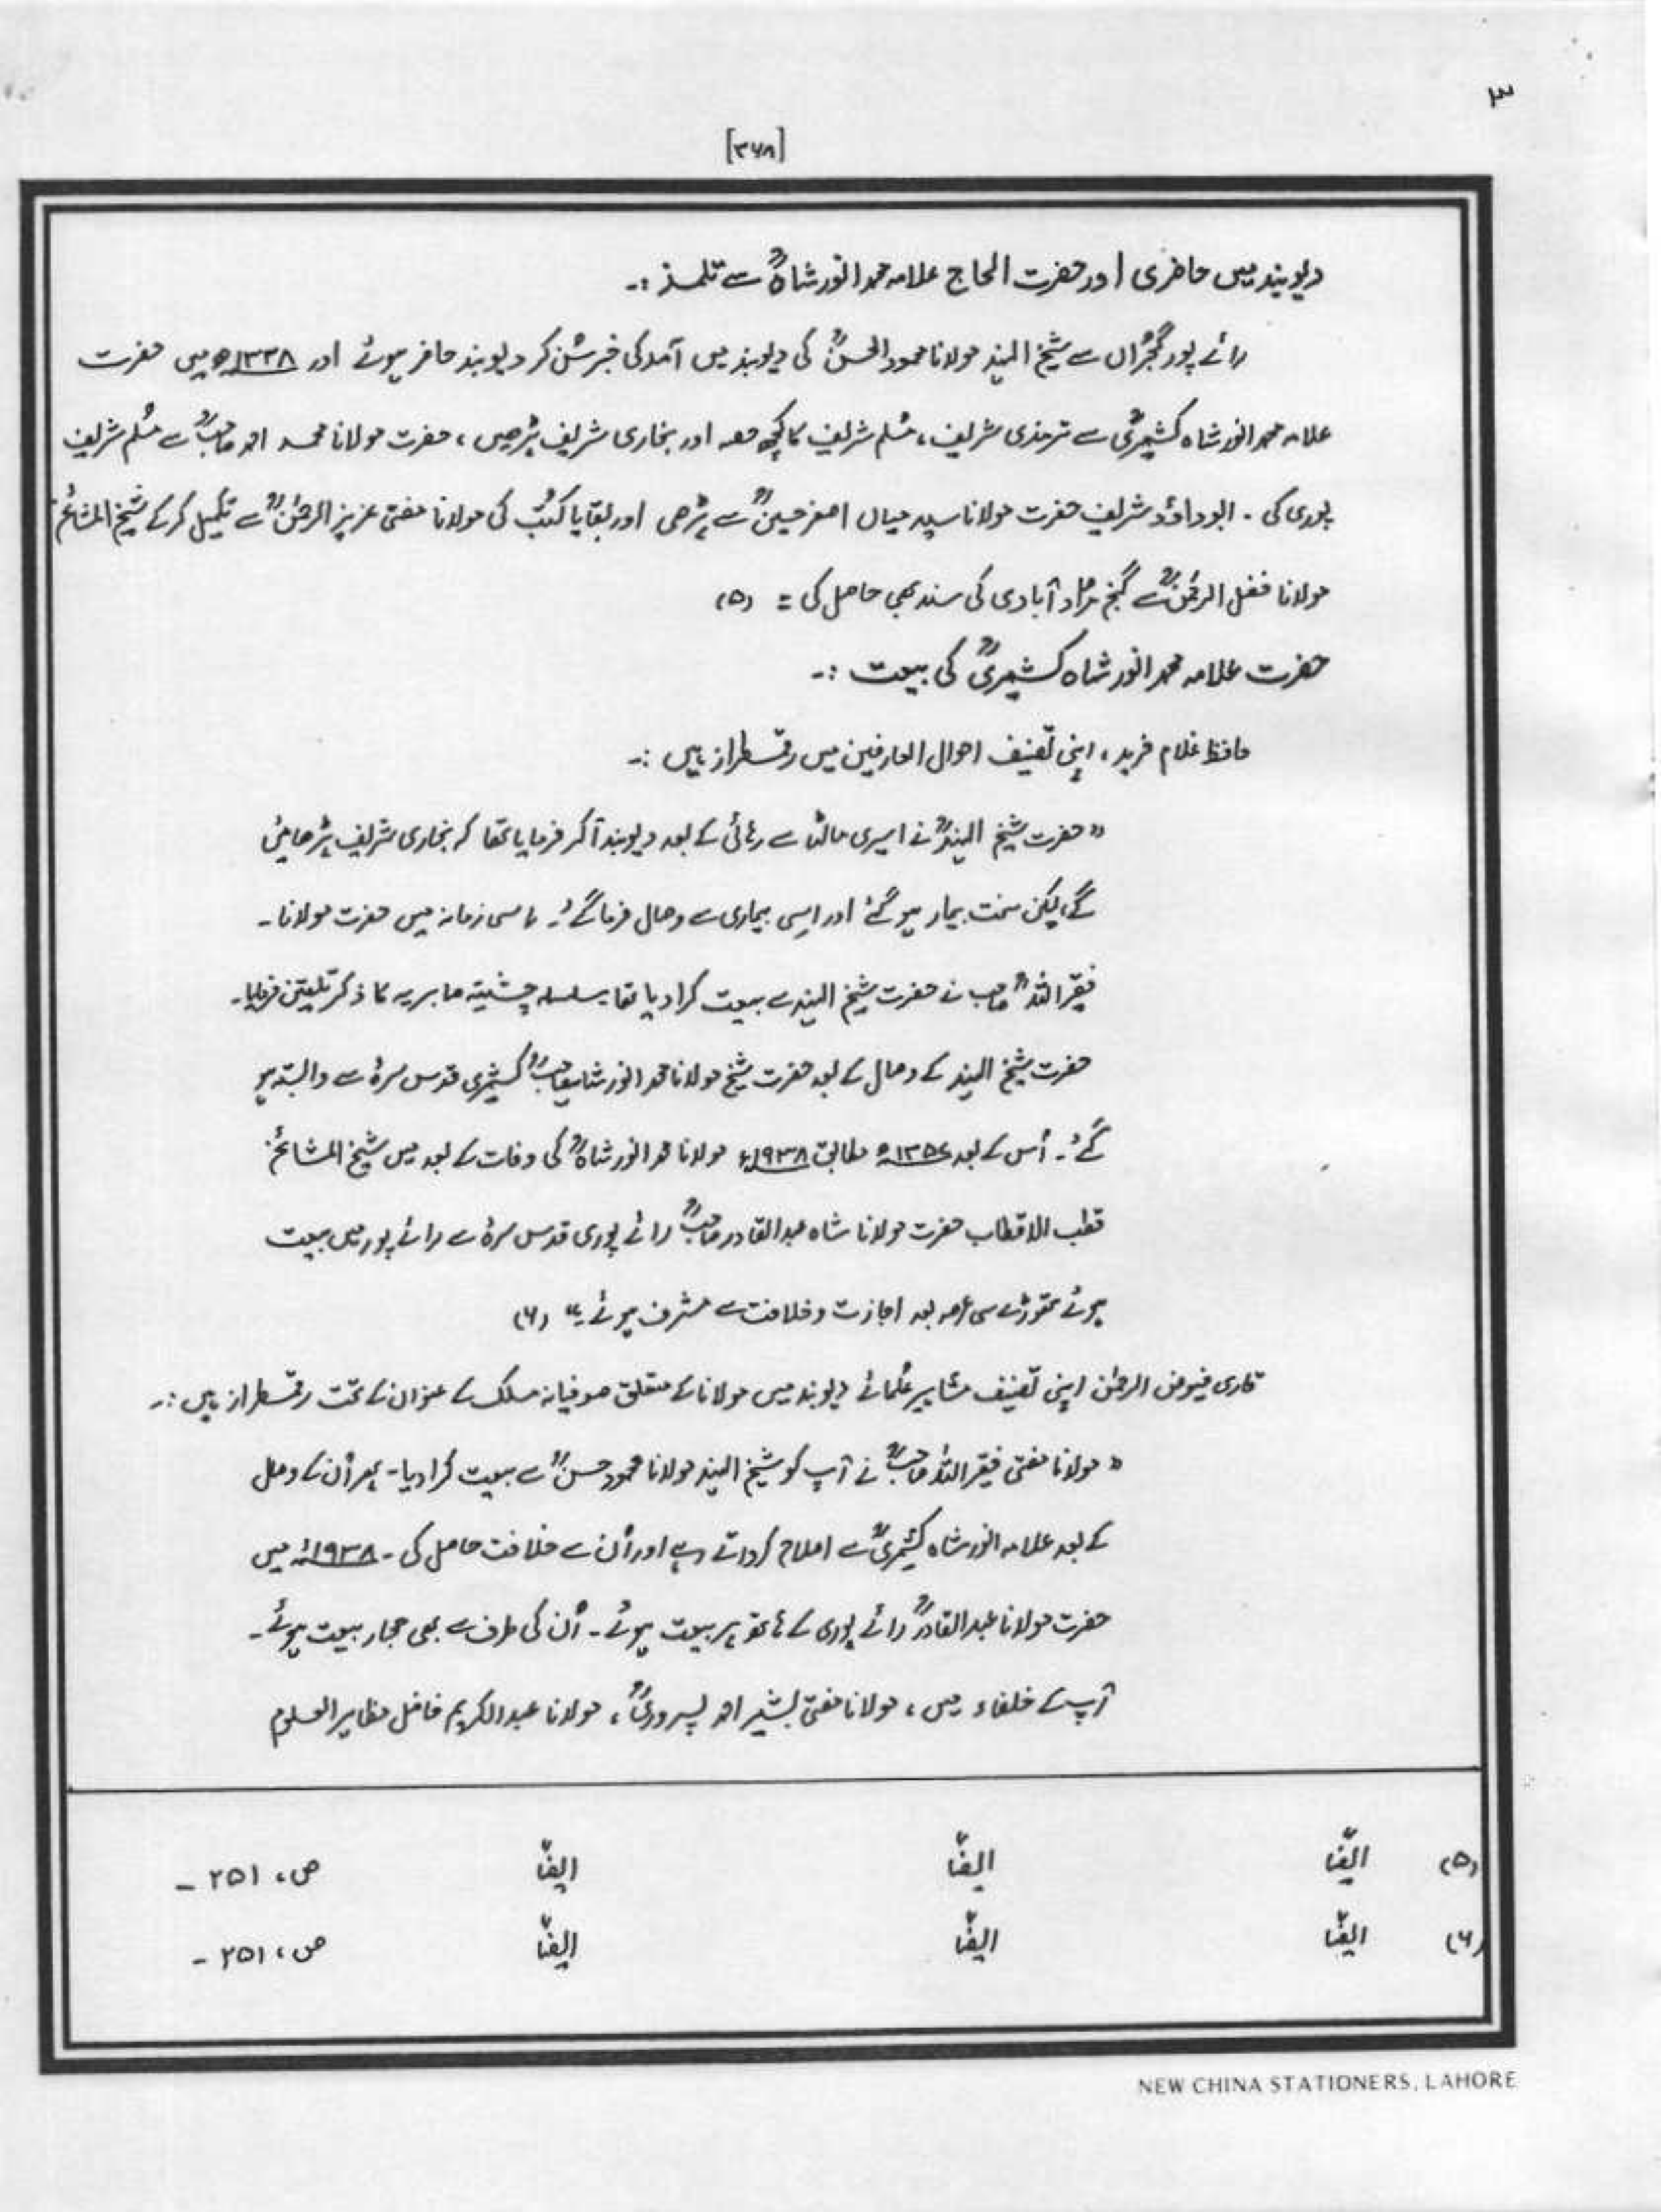 ۳
[۳۶۸]
دیوبند میں حاضری اور حضرت الحاج علامہ محمد انور شاہؒ سے تلمذ :۔
رائے پور گجراں سے شیخ الہند مولانا محمود الحسنؒ کی دیوبند میں آمد کی خبر سُن کر دیوبند حاضر ہوئے اور ۱۳۳۸ھ میں حضرت
علامہ محمد انور شاہ کشمیریؒ سے ترمذی شریف، مُسلم شریف کا کچھ حصہ اور بخاری شریف پڑھیں ، حضرت مولانا محمد احمد صاحبؒ سے مُسلم شریف
پوری کی ۔ ابوداؤد شریف حضرت مولانا سید میاں اصغر حسینؒ سے پڑھی اور بقایا کتُب کی مولانا مفتی عزیز الرحمٰنؒ سے تکمیل کر کے شیخ المشائخ
مولانا فضل الرحمٰنؒ سے گنج مراد آبادی کی سند بھی حاصل کی = (۵)
حضرت علامہ محمد انور شاہ کشمیریؒ کی بیعت :۔
حافظ غلام فرید ، اپنی تصنیف احوال العارفین میں رقمطراز ہیں :۔
" حضرت شیخ الہندؒ نے اسیری مالٹا سے رہائی کے بعد دیوبند آکر فرمایا تھا کہ بخاری شریف پڑھائیں
گے لیکن سخت بیمار ہو گئے اور اسی بیماری سے وصال فرما گئے ۔ اسی زمانہ میں حضرت مولانا ۔
فقیر اللہؒ صاحب نے حضرت شیخ الہند سے بیعت کرا دیا تھا سلسلہ چشتیہ صابریہ کا ذکر تلقین فرمایا ۔
حضرت شیخ الہند کے وصال کے بعد حضرت شیخ مولانا محمد انور شاہ صاحبؒ کشمیری قدس سرہٗ سے وابستہ ہو
گئے ۔ اُس کے بعد ۱۳۵۷ھ مطابق ۱۹۳۸ء مولانا محمد انور شاہؒ کی وفات کے بعد میں شیخ المشائخ
قطب الاقطاب حضرت مولانا شاہ عبدالقادر صاحبؒ رائے پوری قدس سرہٗ سے رائے پور میں بیعت
ہوئے تھوڑے سی عرصہ بعد اجازت و خلافت سے مشرف ہوئے ۔" (۶)
قاری فیوض الرحمٰن اپنی تصنیف مشاہیر عُلمائے دیوبند میں مولانا کے متعلق صوفیانہ مسلک کے عنوان کے تحت رقمطراز ہیں :۔
" مولانا مفتی فقیر اللہ صاحبؒ نے آپ کو شیخ الہند مولانا محمود حسنؒ سے بیعت کرا دیا ۔ پھر اُن کے وصال
کے بعد علامہ انور شاہ کشمیریؒ سے اصلاح کرواتے رہے اور اُن سے خلافت حاصل کی ۔ ۱۹۳۸ء میں
حضرت مولانا عبدالقادرؒ رائے پوری کے ہاتھ پر بیعت ہوئے ۔ اُن کی طرف سے بھی مجاز بیعت ہوئے ۔
آپ کے خلفاء میں ، مولانا مفتی بشیر احمد پسروریؒ ، مولانا عبدالکریم فاضل مظاہر العلوم
(۵) ایضًا ایضًا ایضًا ص، ۲۵۱ ۔
(۶) ایضًا ایضًا ایضًا ص، ۲۵۱ ۔
NEW CHINA STATIONERS, LAHORE